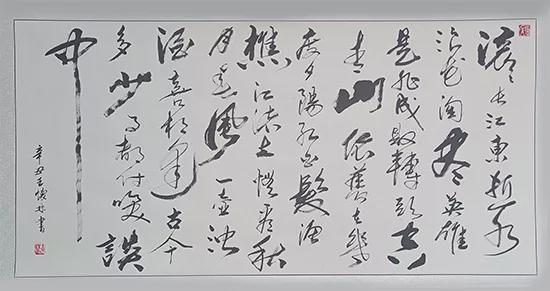 滚々长江東逝水
浪花淘尽英雄
是非成败轉头空
青山依舊在幾
度夕陽红白髮渔
樵江渚上惯看秋
月春風一壶浊
酒喜相逢古今
多少事都付笑談
中
辛丑王書